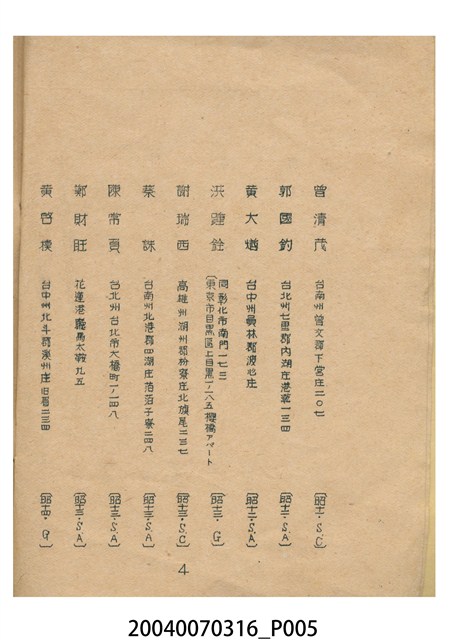 曾清茂 台南州曾文郡下營庄二〇七 (昭十二・S.C.)
郭國鈞 台北州七星郡內湖庄港墘一三四 (昭十二・S.A.)
黃大遒 台中州員林郡坡心庄 (昭十二・S.A.)
洪鐘銓 同彰化市南門一七三 (昭十三・G)
(東京市目黑區上目黑一ノ二八五櫻橋アパート
謝瑞西 高雄州潮州郡枋寮庄北旗尾二三七 (昭十三・S.C)
蔡 誅 台南州北港郡四湖庄萡萡子寮二四八 (昭十三・S.A)
陳常貢 台北州台北市大橋町一ノ一四八 (昭十三・S.A)
鄭財旺 花蓮港廳馬太鞍九五 (昭十三・S.A.)
黃啓樸 台中州北斗郡溪州庄旧眉二三四 (昭十四・G)
4
20040070316_P005